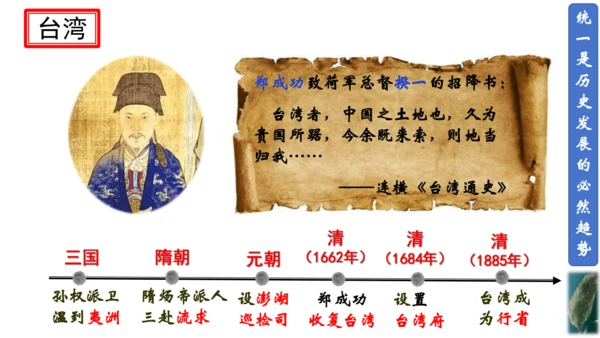 台湾
郑成功致荷军总督揆一的招降书：
台湾者，中国之土地也，久为
贵国所踞，今余既来索，则地当
归我……
——连横《台湾通史》
统一是历史发展的必然趋势
三国
孙权派卫
温到夷洲
隋朝
隋炀帝派人
三赴流求
元朝
设澎湖
巡检司
清
（1662年）
郑成功
收复台湾
清
（1684年）
设置
台湾府
清
（1885年）
台湾成
为行省